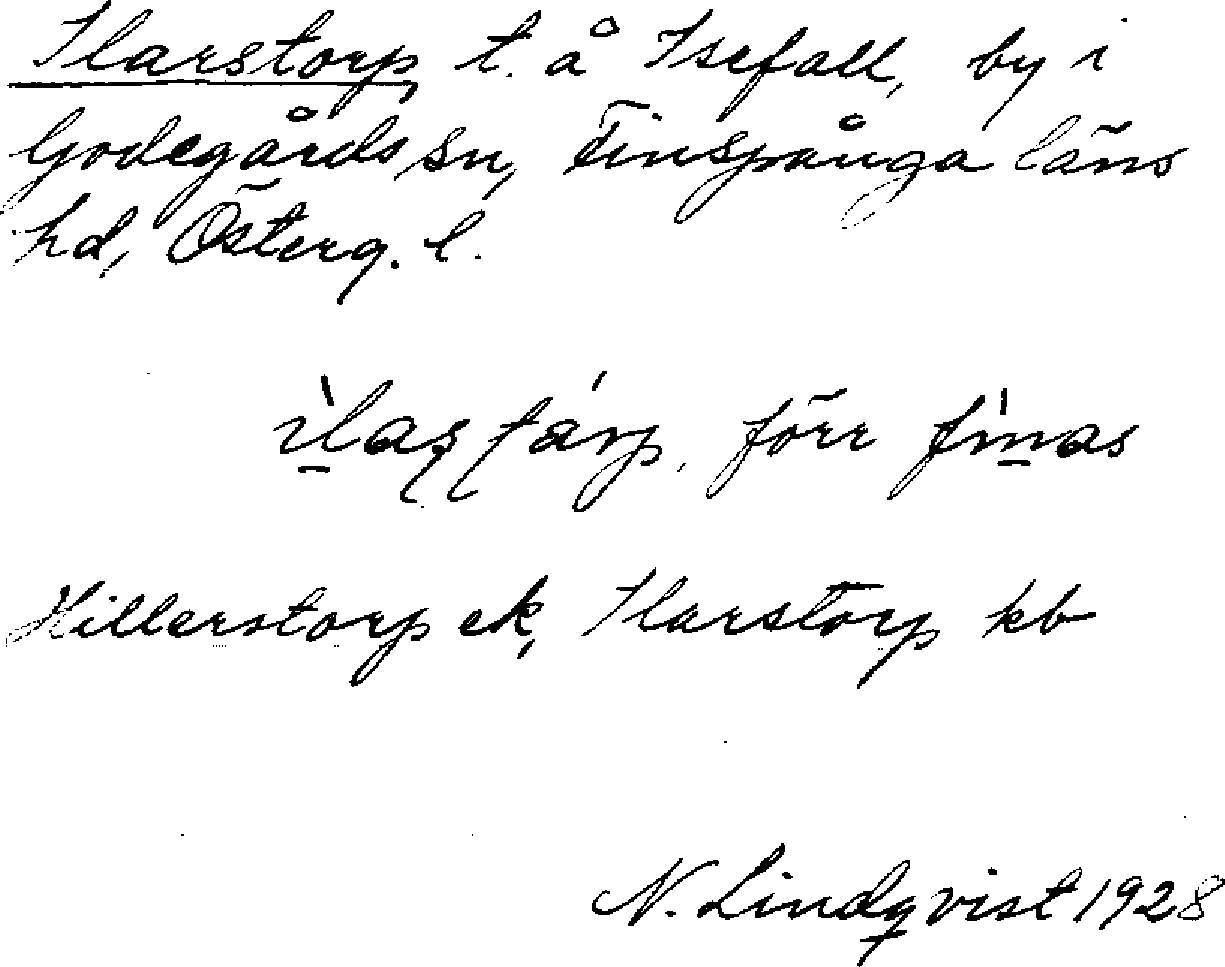 Ilarstorp, t. å Isefall, by i
Godegårds sn, Finspånga läns
hd, Österg. l.
förr finas
Hillerstorp ek, Ilarstorp kb
N. Lindqvist 1928